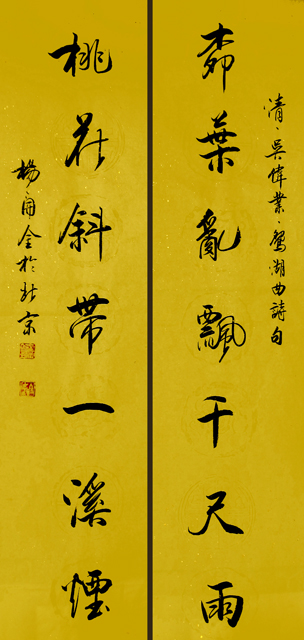 清、吳偉業、鴛湖曲詩句
柳葉亂飄千尺雨
桃花斜帶一溪煙
楊金於北京